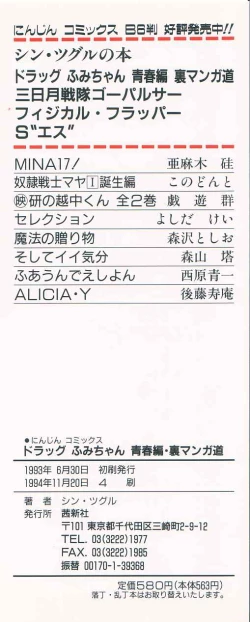 にんじん コミックス B6判 好評発売中!!
シン・ツグルの本
ドラッグ ふみちゃん 青春編 裏マンガ道
三日月戦隊ゴーパルサー
フィジカル・フラッパー
S"エス"
MINA17! 亜麻木 硅
奴隷戦士マヤⅠ誕生編 このどんと
映研の越中くん 全2巻 戯遊群
セレクション よしだ けい
魔法の贈り物 森沢としお
そしてイイ気分 森山 塔
ふあうんでえしよん 西原青一
ALICIA・Y 後藤寿庵
●にんじん コミックス
ドラッグ ふみちゃん 青春編・裏マンガ道
1993年 6月30日 初刷発行
1994年11月20日 4 刷
著者 シン・ツグル
発行所 茜新社
〒101 東京都千代田区三崎町2-9-12
TEL. 03(3222)1977
FAX. 03(3222)1985
振替 00170-1-39368
定価580円(本体563円)
落丁・乱丁本はお取り替えいたします。